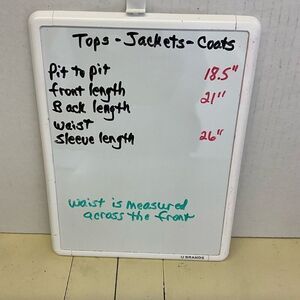 Tops - Jackets - Coats
Pit to pit 18.5"
front length 21"
Back length
waist
Sleeve length 26"
waist is measured
across the front
U BRANDS